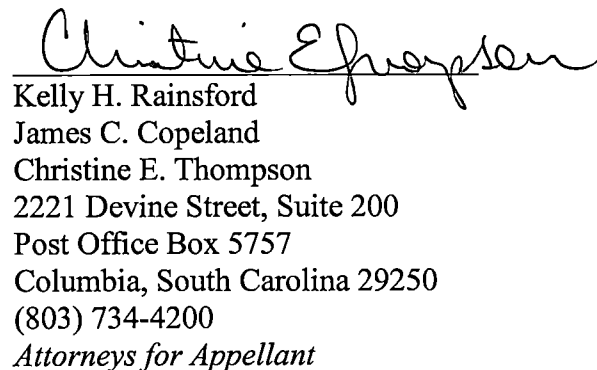 Christine E Thompson
Kelly H. Rainsford
James C. Copeland
Christine E. Thompson
2221 Devine Street, Suite 200
Post Office Box 5757
Columbia, South Carolina 29250
(803) 734-4200
Attorneys for Appellant